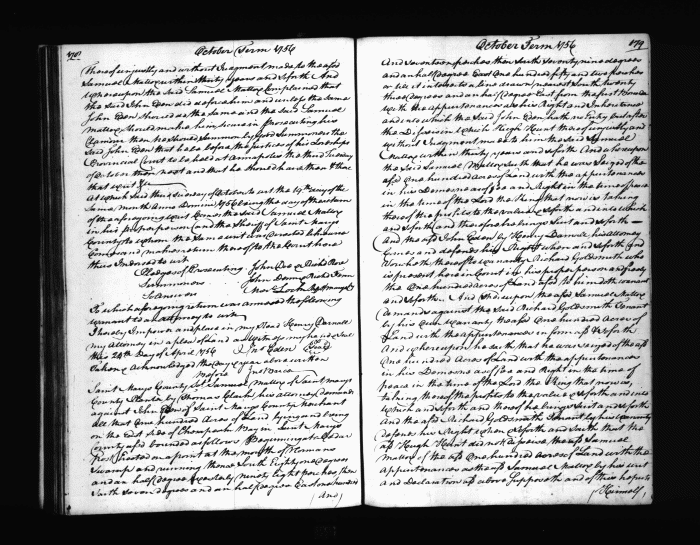 478
October Term 1756
thereof unjustly and without Judgment made to the afsd
Samuel Mattox within thirty years and so forth And
whereupon the said Samuel Mattox Complained that
the said John Eden did aforehim and unless the same
John Eden should do the same and the said Samuel
Mattox should make him secure in prosecuting his
Claim then he should summon by good Summoners the
said John Eden that he be before the Justices of his Lordships
Provincial Court to be held at Annapolis the third Tuesday
of October then next and that he should have then & there
that writ &c
At which said third Tuesday of October to wit the 19th day of the
same month Anno Domini 1756 being the day of the return
of the aforegoing writ Comes the said Samuel Mattox
in his proper person and the Sheriff of Saint Marys
County to whom the same writ was directed to him
Command makes return thereof to the Court here
thus Indorsed to wit
Pledges of Prosecuting John Doe & Richd Roe
Summoners John Denn & Richd Fenn
Sci Summoners
To which aforegoing return was annexed the following
warrant to an attorney to wit
I hereby Impower and place in my Stead Henry Darnall
my Attorney in a plea of Land as witness my hand & Seal
this 24th Day of April 1756 Jno Eden Seal
Taken & Acknowledged the day & year above written
before
Saint Marys County Ss Samuel Mattox of Saint Marys
County Planter by Thomas Clark his attorney demands
against John Eden of Saint Marys County Merchant
all that One hundred acres of Land lying and being
on the East side of Chesapeak Bay in Saint Marys
County and bounded as follows Beginning at a Cedar
Post fixed on a point at the mouth of
Swamp and running thence South Eighty nine degrees
and an half degree Easterly ninety Eight perches then
South Seven degrees and an half degree East one hundred
and
October Term 1756
479
And Seventeen perches then South seventy nine degrees
and an half degree East One hundred fifty and two perches
or till it intersects a line drawn near South twenty
three degrees and an half degree East from the first Bounder
with the appurtenances as his Right and Inheritance
and into which the said John Eden hath no Entry but after
the Disseisin which Hugh Hunt thereof unjustly and
without Judgment made to him the said Samuel
Mattox within thirty years and so forth And whereupon
the said Samuel Mattox saith that he was Seized of the
afsd One hundred acres of Land with the appurtenances
in his Demesne as of fee and Right in the time of peace
in the time of the Lord the King that now is taking
thereof the profits to the value & so forth and into which
and so forth and thereof he brings Suit and so forth
And the afsd John Eden by Henry Darnall his attorney
Comes and defends his Right when and so forth and
Voucheth thereof to warranty Richard Goldsmith who
is present here in Court in his proper person and freely
the One hundred acres of Land afsd to him doth warrant
and so forth. And thereupon the afsd Samuel Mattox
demands against the said Richard Goldsmith Tenant
by his own warranty the afsd One hundred acres of
Land with the appurtenances in form afsd & so forth
And whereupon he saith that he was seized of the afsd
One hundred Acres of Land with the appurtenances
in his Demesne as of fee and Right in the time of
peace in the time of the Lord the King that now is,
taking thereof the profits to the value & so forth and into
which and so forth and thereof he brings Suit and so forth
And the afsd Richard Goldsmith tenant by his warranty
defends his Right when & so forth and saith that the
afsd Hugh Hunt did not disseize the afsd Samuel
Mattox of the afsd One hundred Acres of Land with the
appurtenances as the afsd Samuel Mattox by his writ
and Declaration afsd above Supposeth and of this he puts
himself